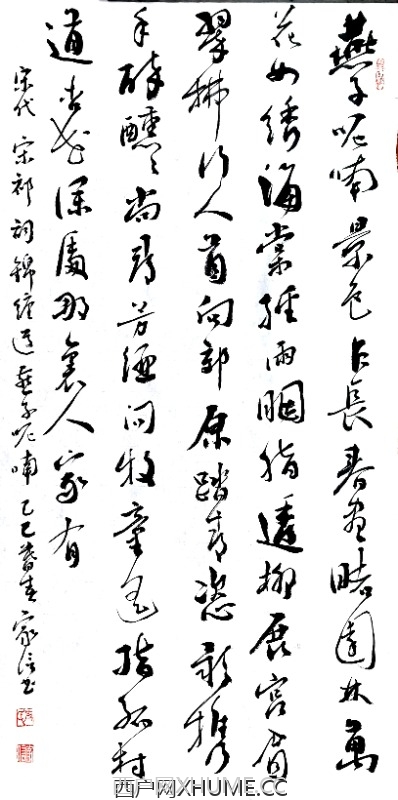 燕子呢喃景色乍長春晝睹園林萬
花如绣海棠經雨胭脂透柳展宮眉
翠拂行人首向郊原踏青恣歌携
手醉醺々尚尋芳酒問牧童遥指孤村
道杏花深處那裏人家有
宋代 宋祁词锦缠道燕子呢喃 乙巳暮春 家信书
西户网XHUME.CC